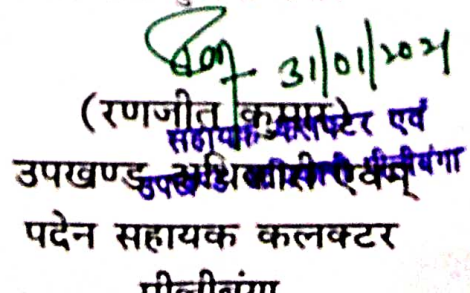 31/01/2021
(रणजीत कुमार)
सहायक कलक्टर एवं
उपखण्ड अधिकारी एवम्
उपखण्ड अधिकारी पीलीबंगा
पदेन सहायक कलक्टर
पीलीबंगा